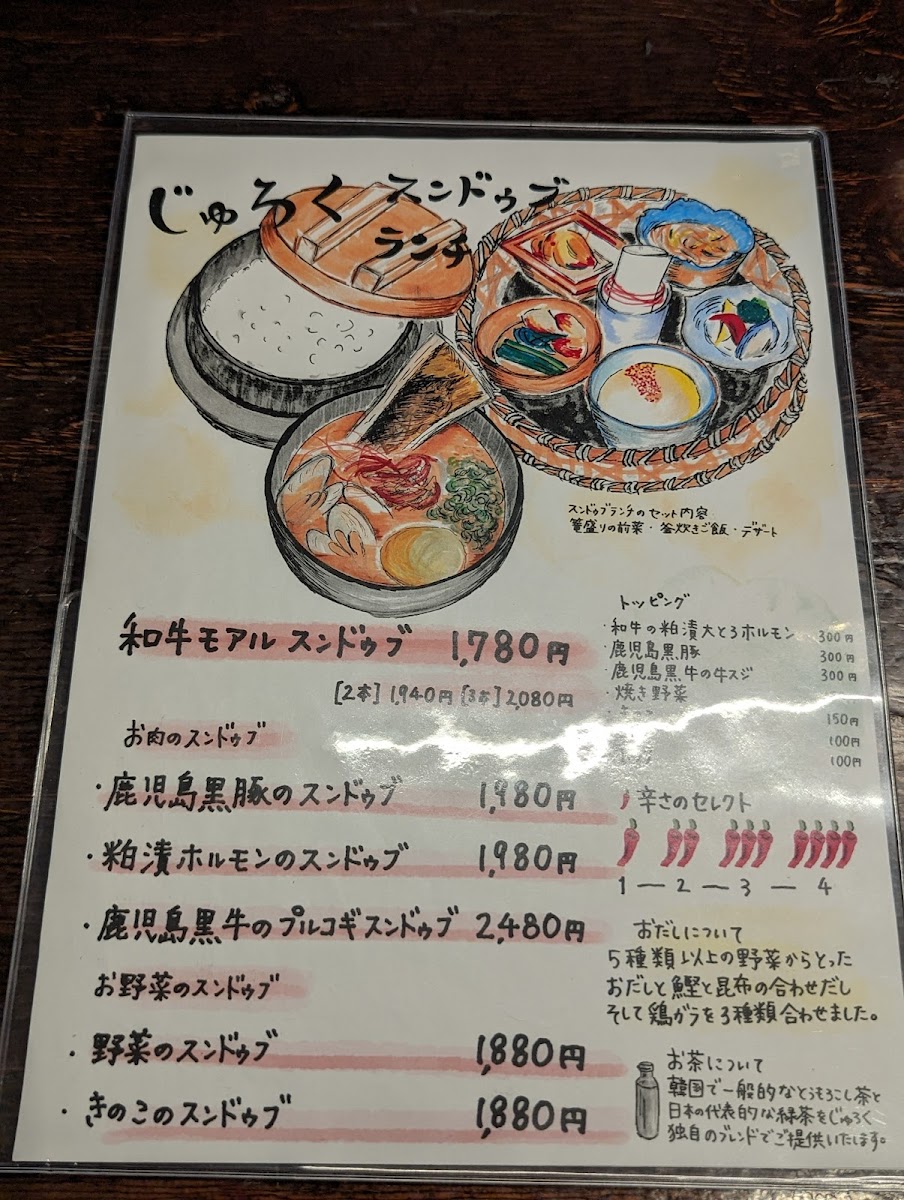 じゅろく スンドゥブ
ランチ
スンドゥブランチのセット内容
籠盛りの前菜・釜炊きご飯・デザート
和牛モアル スンドゥブ 1,780円
[2本] 1,940円 [3本] 2,080円
お肉のスンドゥブ
・鹿児島黒豚のスンドゥブ 1,980円
・粕漬ホルモンのスンドゥブ 1,980円
・鹿児島黒牛のプルコギスンドゥブ 2,480円
お野菜のスンドゥブ
・野菜のスンドゥブ 1,880円
・きのこのスンドゥブ 1,880円
トッピング
・和牛の粕漬大とろホルモン 300円
・鹿児島黒豚 300円
・鹿児島黒牛の牛スジ 300円
・焼き野菜
150円
100円
100円
辛さのセレクト
1 ― 2 ― 3 ― 4
おだしについて
5種類以上の野菜からとった
おだしと鰹と昆布の合わせだし
そして鶏ガラを3種類合わせました。
お茶について
韓国で一般的なとうもろこし茶と
日本の代表的な緑茶をじゅろく
独自のブレンドでご提供いたします。